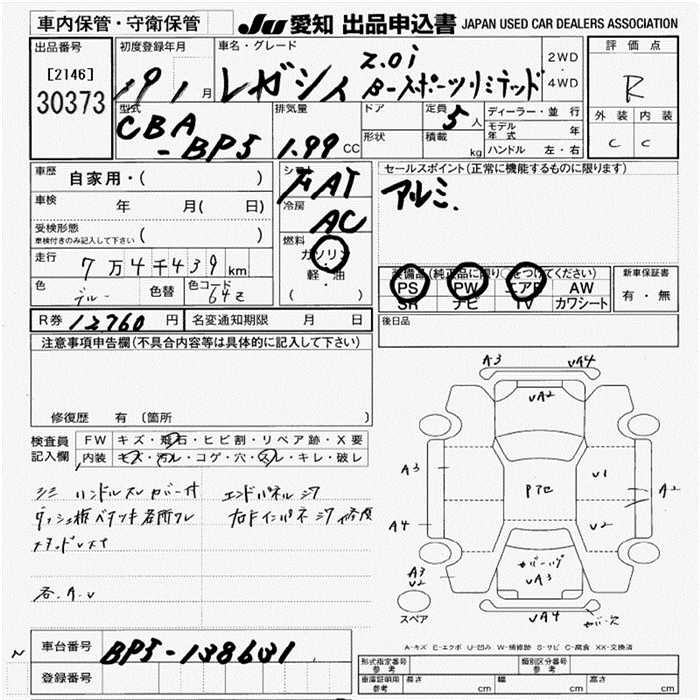 車内保管・守衛保管
JU 愛知 出品申込書 JAPAN USED CAR DEALERS ASSOCIATION
出品番号
[2146]
30373
初度登録年月
19 1月
車名・グレード
レガシィ
2.0i
B-スポーツリミテッド
2WD
4WD
評価点
R
外装 内装
C C
型式
CBA
-BP5
排気量
1.99 CC
ドア
形状
定員
5人
積載
kg
ディーラー・並行
モデル年式 年
ハンドル 左・右
車歴
自家用・( )
車検
年 月( 日)
受検形態
車検付きのみ記入して下さい ( )
走行
7万4千439km
色
ブルー
色替
色コード
64Z
シフト
FAT
冷房
AC
燃料
ガソリン
・
軽・油
( )
セールスポイント(正常に機能するものに限ります)
アルミ.
装備品(純正品に限り○をつけてください)
PS PW エアB AW
SR ナビ TV カワシート
新車保証書
有・無
R券 12760円
名変通知期限 月 日
後日品
注意事項申告欄(不具合内容等は具体的に記入して下さい)
修復歴 有 〔箇所
検査員
記入欄
FW キズ・飛石・ヒビ割・リペア跡・X要
内装 キズ・汚レ・コゲ・穴・スレ・キレ・破レ
シミ ハンドルスレ カバー付 エンドパネルシワ
ダッシュ板ベタツキ各所ワレ 右ドインパネシワ 修復
各.A.U
A3 UA4
UA2
A3 U1 A2
Pアセ
A4 U2
A3
U2
UA3
UA4
スペア
A-キズ E-エクボ U-凹み W-補修跡 S-サビ C-腐食 XX-交換済
N
車台番号
BP5-138631
登録番号
型式指定番号
参考
類別区分番号
参考
車庫証明用
参考
長さ cm 幅 cm 高さ cm